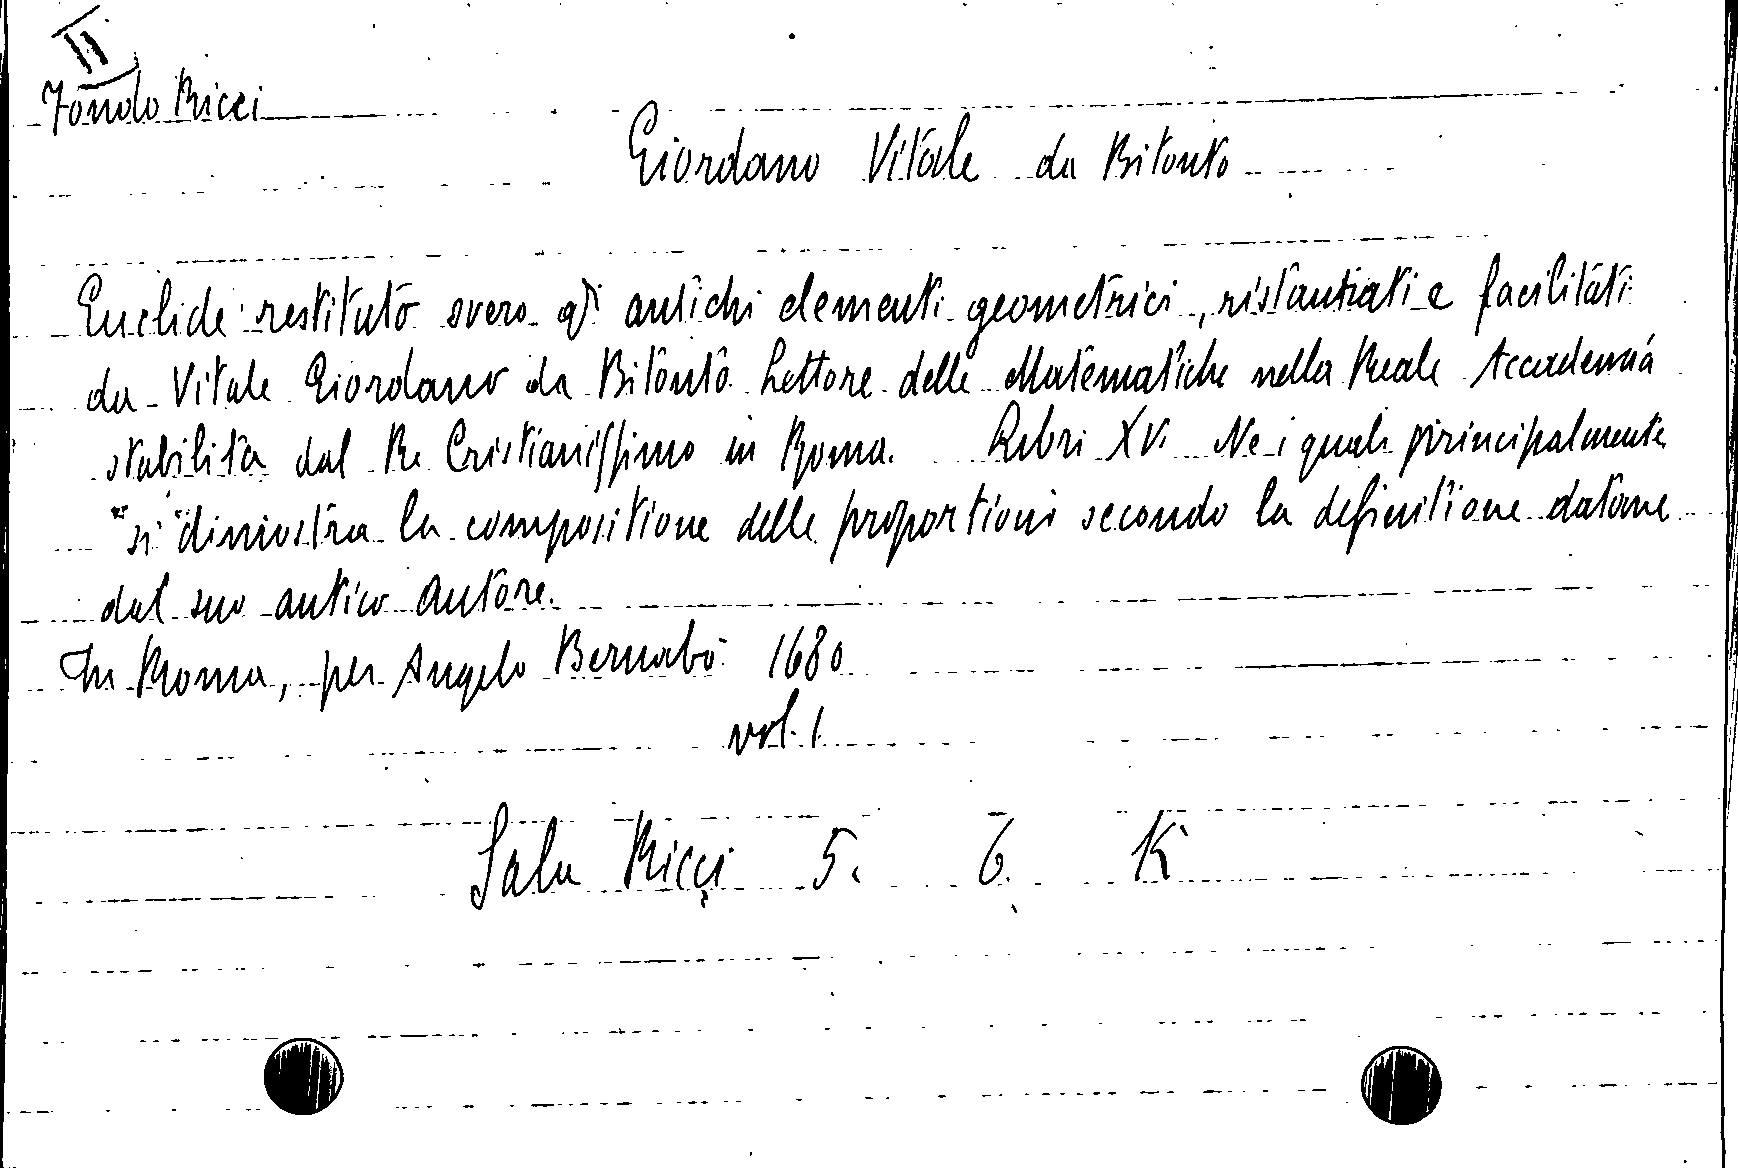 II
Fondo Ricci
Giordano Vitale da Bitonto
Euclide restituto overo gl'i antichi elementi geometrici, ristaurati e facilitati
da Vitale Giordano da Bitonto Lettore delle Matematiche nella Reale Accademia
stabilita dal Re Cristianissimo in Roma. Libri XV. Ne i quali principalmente
si dimostra la compositione delle proportioni secondo la definitione datane
dal suo antico Autore.
In Roma, per Angelo Bernabò 1680
vol. 1
Sala Ricci 5. 6. K